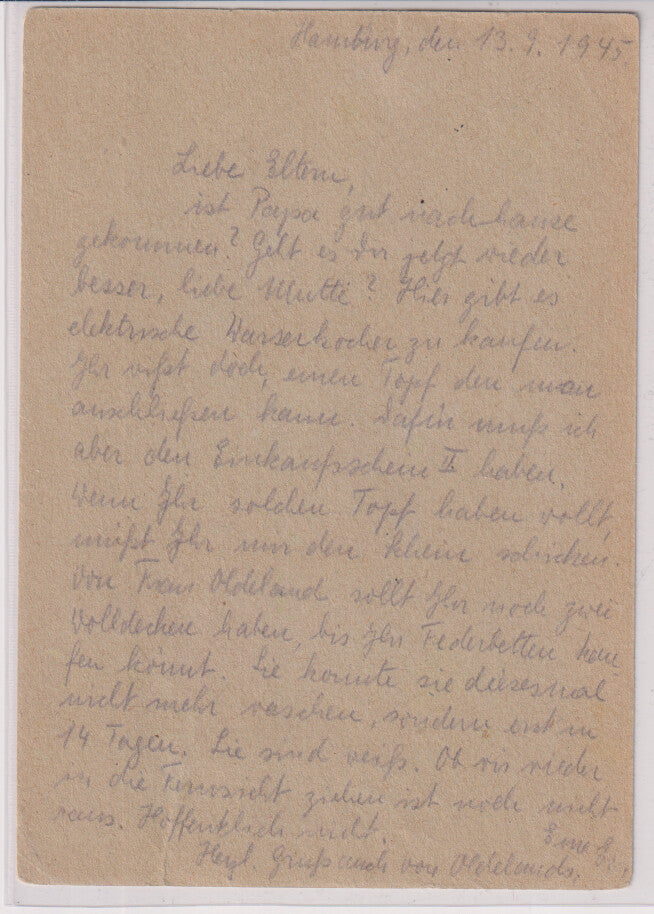 Hamburg, den 13. 9. 1945
Liebe Eltern,
ist Papa gut nach hause
gekommen? Geht es Dir jetzt wieder
besser, liebe Mutti? Hier gibt es
elektrische Wasserkocher zu kaufen.
Ihr wißt doch, einen Topf den man
anschließen kann. Dafür muß ich
aber den Einkaufsschein II haben.
Wenn Ihr solchen Topf haben wollt,
müßt Ihr mir den Schein schicken.
Von Frau Oldeland sollt Ihr noch zwei
Wolldecken haben, bis Ihr Federbetten kau
fen könnt. Sie konnte sie diesesmal
nicht mehr waschen, sondern erst in
14 Tagen. Sie sind weiß. Ob wir wieder
in die Fernsicht ziehen ist noch nicht
raus. Hoffentlich nicht.
Eure
Herzl. Gruß auch von Oldelands.